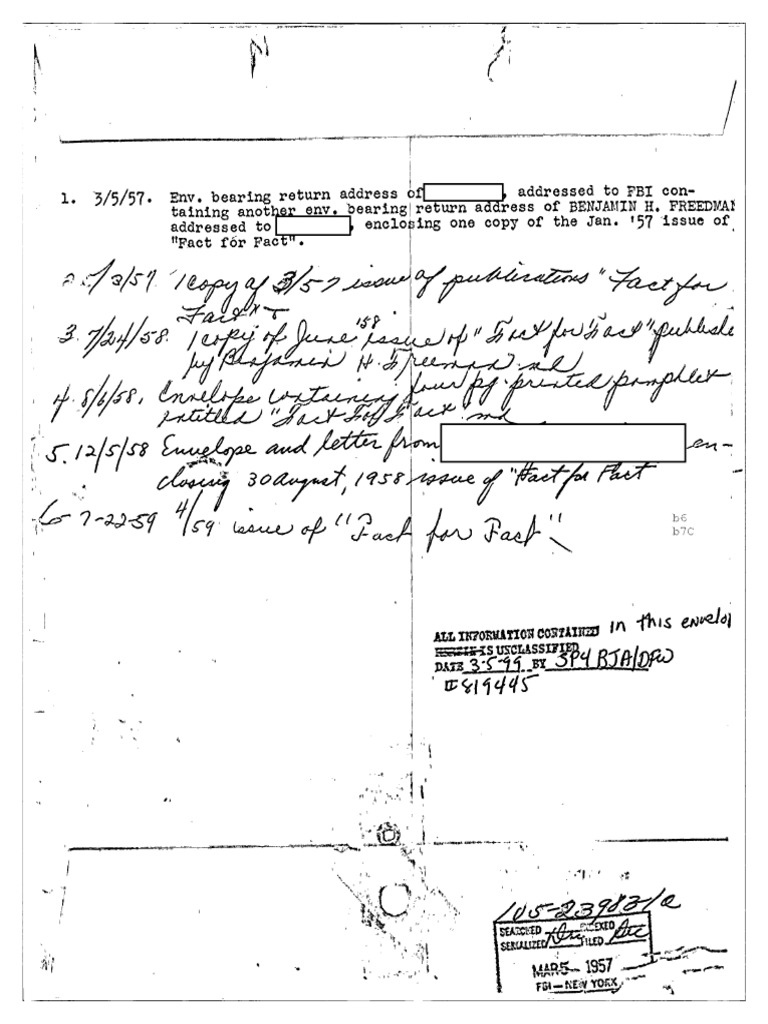 1. 3/5/57. Env. bearing return address of , addressed to FBI con-
taining another env. bearing return address of BENJAMIN H. FREEDMAN
addressed to , enclosing one copy of the Jan. '57 issue of
"Fact for Fact".
/3/57 1 copy of 3/57 issue of publications "Fact for
Fact"
3. 7/24/58. 1 copy of June '58 issue of "Fact for Fact" publishe
by Benjamin H. Freeman md
4. 8/6/58. Envelope containing four pg. printed pamphlet
entitled "Fact For Fact" md
5. 12/5/58 Envelope and letter from en-
closing 30 August, 1958 issue of "Fact for Fact
6 7-22-59 4/59 issue of "Fact for Fact"
b6
b7C
ALL INFORMATION CONTAINED in this envelo
IS UNCLASSIFIED
DATE 3-5-99 BY SP4 BJA/DFW
#819445
105-23983-1a
SEARCHED INDEXED
SERIALIZED FILED
MAR 5 - 1957
FBI - NEW YORK